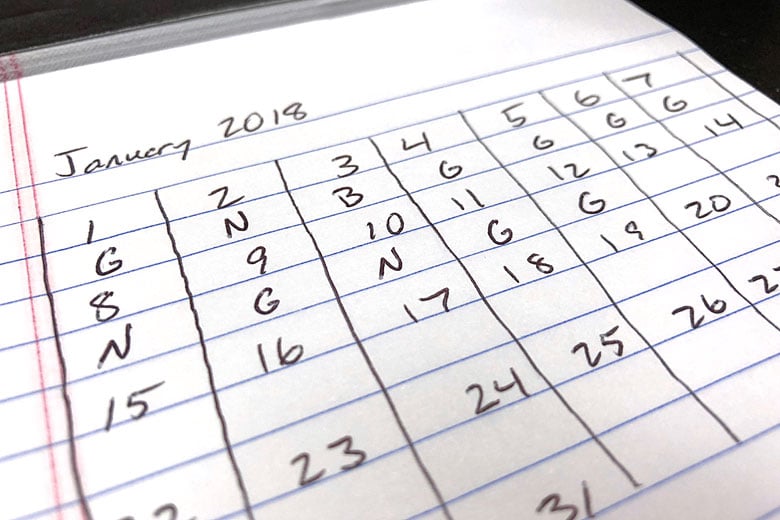 January 2018
1 2 3 4 5 6 7
G N B G G G G
8 9 10 11 12 13 14
N G N G G
15 16 17 18 19 20
23 24 25 26
31